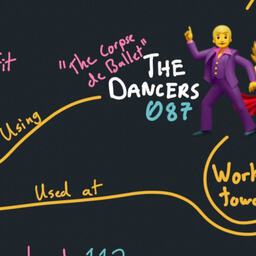 "The Corpse
de Ballet"
THE
DANCERS
087
Using
Used at
Work